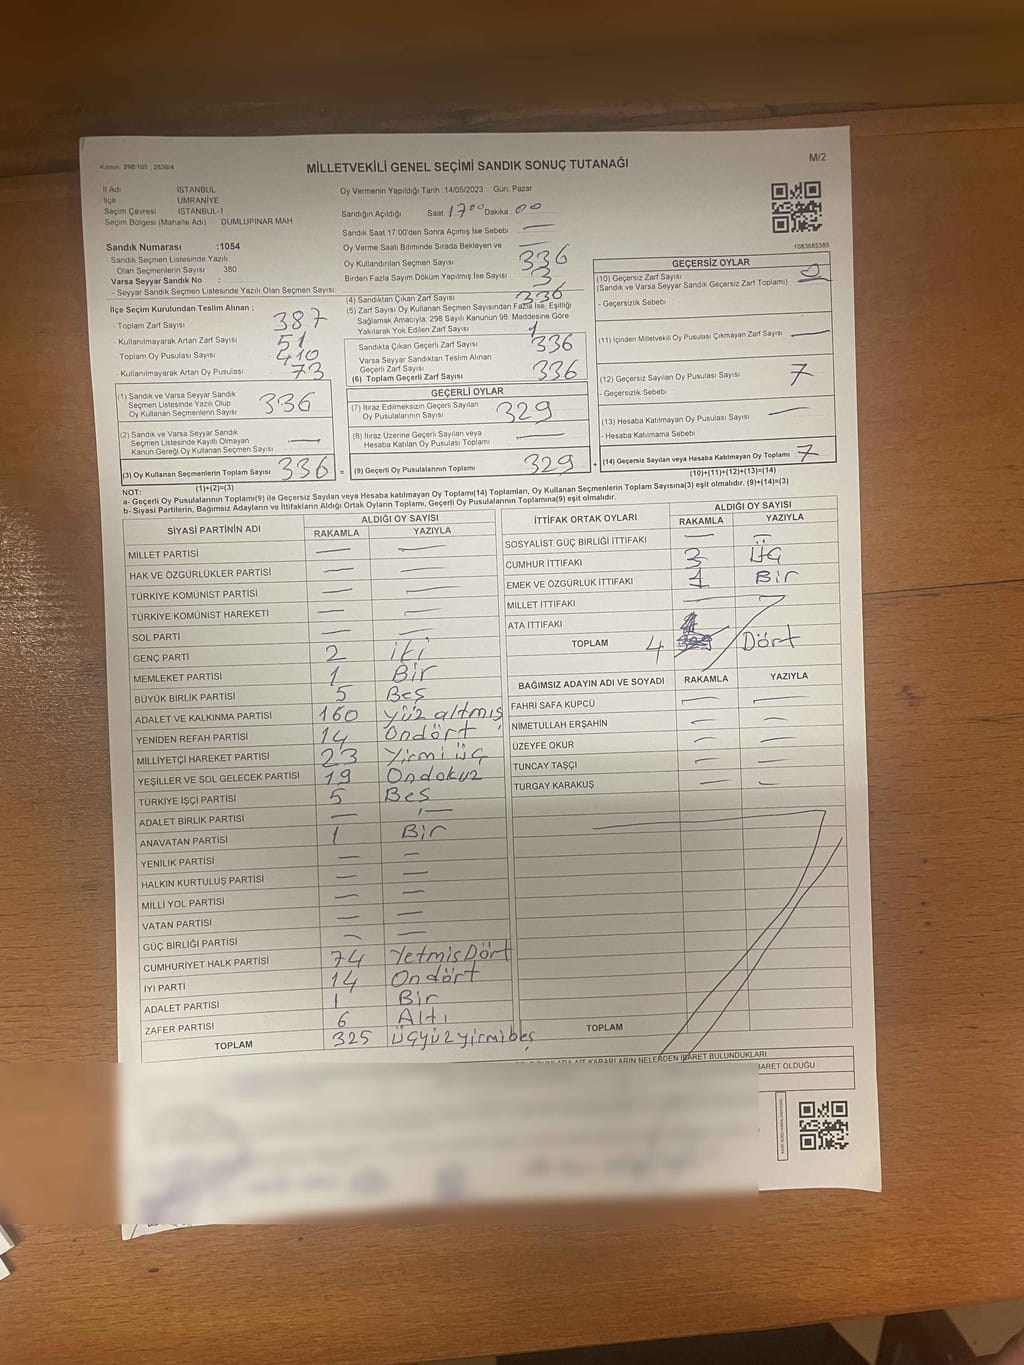 Kanun: 298/105 ; 2839/4
MİLLETVEKİLİ GENEL SEÇİMİ SANDIK SONUÇ TUTANAĞI
M/2
İl Adı İSTANBUL
İlçe ÜMRANİYE
Seçim Çevresi İSTANBUL-1
Seçim Bölgesi (Mahalle Adı) DUMLUPINAR MAH
Sandık Numarası :1054
- Sandık Seçmen Listesinde Yazılı
Olan Seçmenlerin Sayısı 380
Varsa Seyyar Sandık No :
- Seyyar Sandık Seçmen Listesinde Yazılı Olan Seçmen Sayısı:
Oy Vermenin Yapıldığı Tarih :14/05/2023 Gün: Pazar
Sandığın Açıldığı Saat 17 00 Dakika : 00
Sandık Saat 17:00'den Sonra Açılmış İse Sebebi —
Oy Verme Saati Bitiminde Sırada Bekleyen ve —
Oy Kullandırılan Seçmen Sayısı 336
Birden Fazla Sayım Döküm Yapılmış İse Sayısı 3
1083685385
İlçe Seçim Kurulundan Teslim Alınan ;
- Toplam Zarf Sayısı 387
- Kullanılmayarak Artan Zarf Sayısı 51
- Toplam Oy Pusulası Sayısı 410
- Kullanılmayarak Artan Oy Pusulası 73
(1) Sandık ve Varsa Seyyar Sandık
Seçmen Listesinde Yazılı Olup
Oy Kullanan Seçmenlerin Sayısı 336
(2) Sandık ve Varsa Seyyar Sandık
Seçmen Listesinde Kayıtlı Olmayan
Kanun Gereği Oy Kullanan Seçmen Sayısı —
(3) Oy Kullanan Seçmenlerin Toplam Sayısı 336 =
(1)+(2)=(3)
(4) Sandıktan Çıkan Zarf Sayısı 336
(5) Zarf Sayısı Oy Kullanan Seçmen Sayısından Fazla İse, Eşitliği
Sağlamak Amacıyla; 298 Sayılı Kanunun 98. Maddesine Göre
Yakılarak Yok Edilen Zarf Sayısı 1
Sandıkta Çıkan Geçerli Zarf Sayısı 336
Varsa Seyyar Sandıktan Teslim Alınan
Geçerli Zarf Sayısı
(6) Toplam Geçerli Zarf Sayısı 336
GEÇERLİ OYLAR
(7) İtiraz Edilmeksizin Geçerli Sayılan
Oy Pusulalarının Sayısı 329
(8) İtiraz Üzerine Geçerli Sayılan veya
Hesaba Katılan Oy Pusulası Toplamı —
(9) Geçerli Oy Pusulalarının Toplamı 329 +
GEÇERSİZ OYLAR
(10) Geçersiz Zarf Sayısı 0
(Sandık ve Varsa Seyyar Sandık Geçersiz Zarf Toplamı)
- Geçersizlik Sebebi :
(11) İçinden Milletvekili Oy Pusulası Çıkmayan Zarf Sayısı —
(12) Geçersiz Sayılan Oy Pusulası Sayısı 7
- Geçersizlik Sebebi :
(13) Hesaba Katılmayan Oy Pusulası Sayısı —
- Hesaba Katılmama Sebebi
(14) Geçersiz Sayılan veya Hesaba Katılmayan Oy Toplamı 7
(10)+(11)+(12)+(13)=(14)
NOT:
a- Geçerli Oy Pusulalarının Toplamı(9) ile Geçersiz Sayılan veya Hesaba katılmayan Oy Toplamı(14) Toplamları, Oy Kullanan Seçmenlerin Toplam Sayısına(3) eşit olmalıdır. (9)+(14)=(3)
b- Siyasi Partilerin, Bağımsız Adayların ve İttifakların Aldığı Ortak Oyların Toplamı, Geçerli Oy Pusulalarının Toplamına(9) eşit olmalıdır.
SİYASİ PARTİNİN ADI ALDIĞI OY SAYISI
RAKAMLA YAZIYLA
MİLLET PARTİSİ — —
HAK VE ÖZGÜRLÜKLER PARTİSİ — —
TÜRKİYE KOMÜNİST PARTİSİ — —
TÜRKİYE KOMÜNİST HAREKETİ — —
SOL PARTİ — —
GENÇ PARTİ 2 iki
MEMLEKET PARTİSİ 1 Bir
BÜYÜK BİRLİK PARTİSİ 5 Beş
ADALET VE KALKINMA PARTİSİ 160 yüz altmış
YENİDEN REFAH PARTİSİ 14 Ondört
MİLLİYETÇİ HAREKET PARTİSİ 23 Yirmi üç
YEŞİLLER VE SOL GELECEK PARTİSİ 19 Ondokuz
TÜRKİYE İŞÇİ PARTİSİ 5 Beş
ADALET BİRLİK PARTİSİ — —
ANAVATAN PARTİSİ 1 Bir
YENİLİK PARTİSİ — —
HALKIN KURTULUŞ PARTİSİ — —
MİLLİ YOL PARTİSİ — —
VATAN PARTİSİ — —
GÜÇ BİRLİĞİ PARTİSİ — —
CUMHURİYET HALK PARTİSİ 74 YetmişDört
İYİ PARTİ 14 Ondört
ADALET PARTİSİ 1 Bir
ZAFER PARTİSİ 6 Altı
TOPLAM 325 üçyüzyirmibeş
İTTİFAK ORTAK OYLARI ALDIĞI OY SAYISI
RAKAMLA YAZIYLA
SOSYALİST GÜÇ BİRLİĞİ İTTİFAKI — —
CUMHUR İTTİFAKI 3 Üç
EMEK VE ÖZGÜRLÜK İTTİFAKI 1 Bir
MİLLET İTTİFAKI —
ATA İTTİFAKI
TOPLAM 4 Dört
BAĞIMSIZ ADAYIN ADI VE SOYADI RAKAMLA YAZIYLA
FAHRİ SAFA KÜPCÜ — —
NİMETULLAH ERŞAHİN — —
ÜZEYFE OKUR — —
TUNCAY TAŞÇI — —
TURGAY KARAKUŞ — —
TOPLAM
KARARLARIN NELERDEN İBARET BULUNDUKLARI
İBARET OLDUĞU